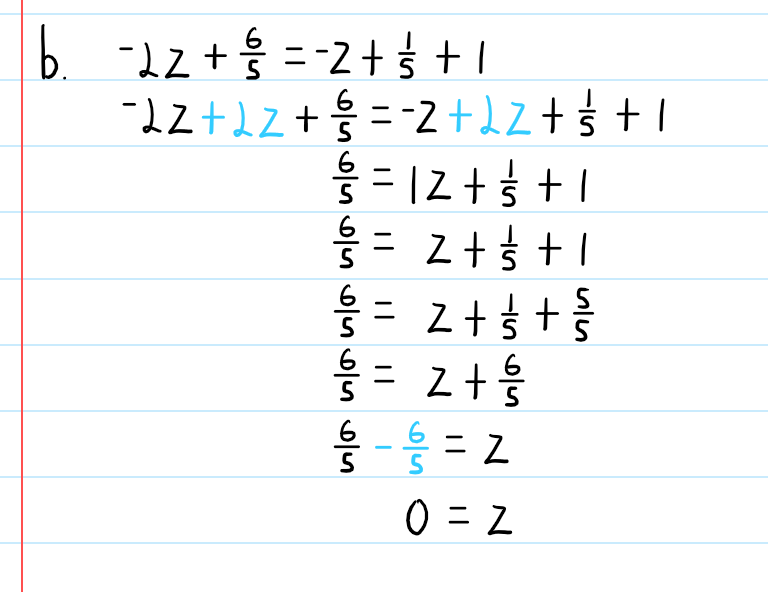 b. -2z + 6/5 = -z + 1/5 + 1
-2z + 2z + 6/5 = -z + 2z + 1/5 + 1
6/5 = 1z + 1/5 + 1
6/5 = z + 1/5 + 1
6/5 = z + 1/5 + 5/5
6/5 = z + 6/5
6/5 - 6/5 = z
0 = z